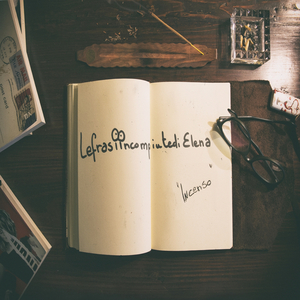 Le frasi incompiute di Elena
"Incenso"